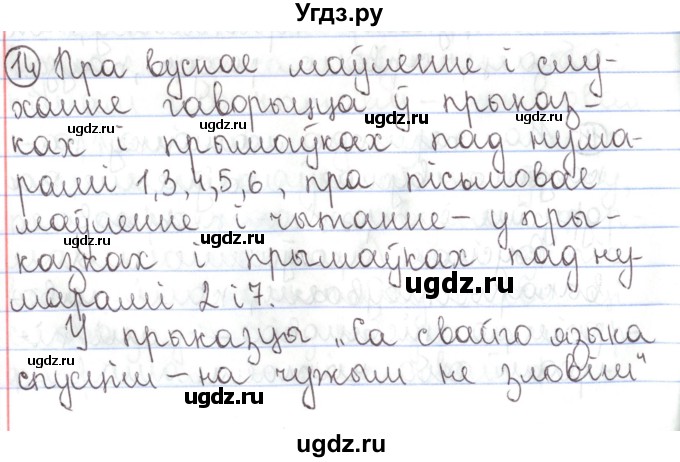 Угдз.ру
14 Пра вуснае маўленне і слу-
ханне гаворыцца ў прыказ-
ках і прымаўках пад нума-
рамі 1,3,4,5,6, пра пісьмовае
маўленне і чытанне – у пры-
казках і прымаўках пад ну-
марамі 2 і 7.
У прыказцы „Са свайго языка
спусціш – на чужым не зловіш“
ugdz.ru
ugdz.ru
ugdz.ru
ugdz.ru
ugdz.ru
ugdz.ru
ugdz.ru
ugdz.ru
ugdz.ru
ugdz.ru